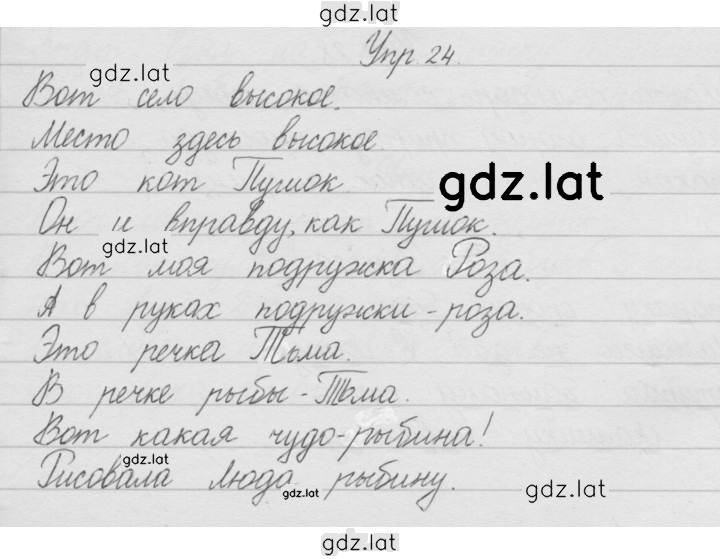 gdz.lat
Упр. 24.
gdz.lat
Вот село высокое.
Место здесь высокое
Это кот Пушок
gdz.lat
Он и вправду, как Пушок.
gdz.lat
Вот моя подружка Роза.
А в руках подружки - роза.
Это речка Тьма.
В речке рыбы - Тьма.
Вот какая чудо-рыбина!
gdz.lat
Рисовала Люда рыбину.
gdz.lat
gdz.lat
gdz.lat